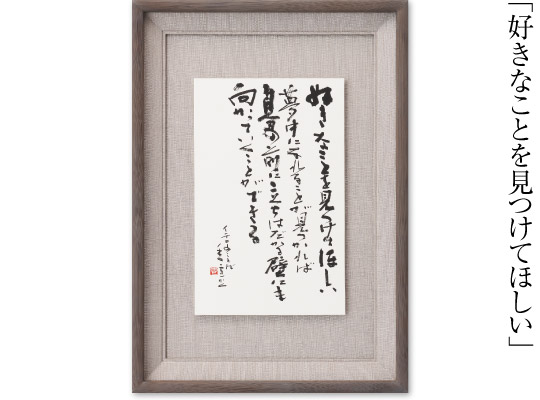 「好きなことを見つけてほしい」
好きなことを見つけてほしい
夢中になれることが見つかれば
自身の前に立ちはだかる壁にも
向かっていくことができる